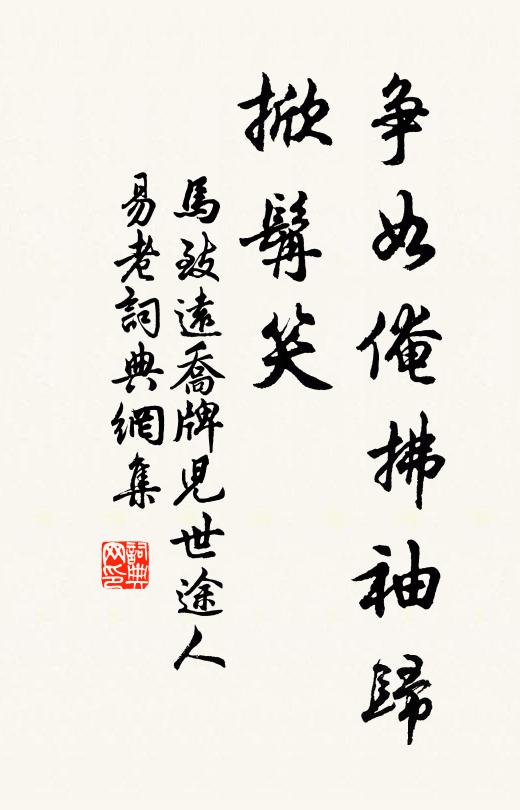 爭如俺拂袖歸
掀髯笑
馬致遠喬牌兒世途人
易老詞典網集
詞典网印